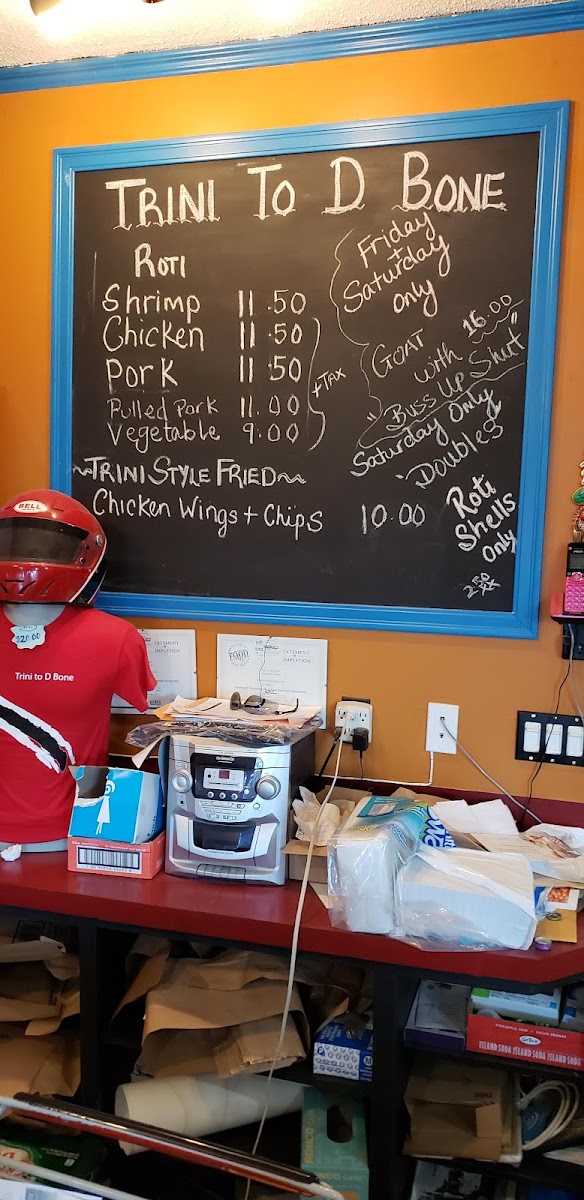 TRINI TO D BONE
ROTI
Shrimp 11.50
Chicken 11.50
Pork 11.50
Pulled Pork 11.00
Vegetable 9.00
+TAX
~TRINI STYLE FRIED~
Chicken Wings + Chips 10.00
Friday
+
Saturday
only
GOAT 16.00
with
"Buss Up Shut"
Saturday Only
"Doubles"
Roti
Shells
Only
2.50
BELL
$20.00
Trini to D Bone
FOOD
STATEMENT OF
COMPLETION
STATEMENT OF
COMPLETION
Grace
ISLAND SODA ISLAND SODA ISLAND SODA